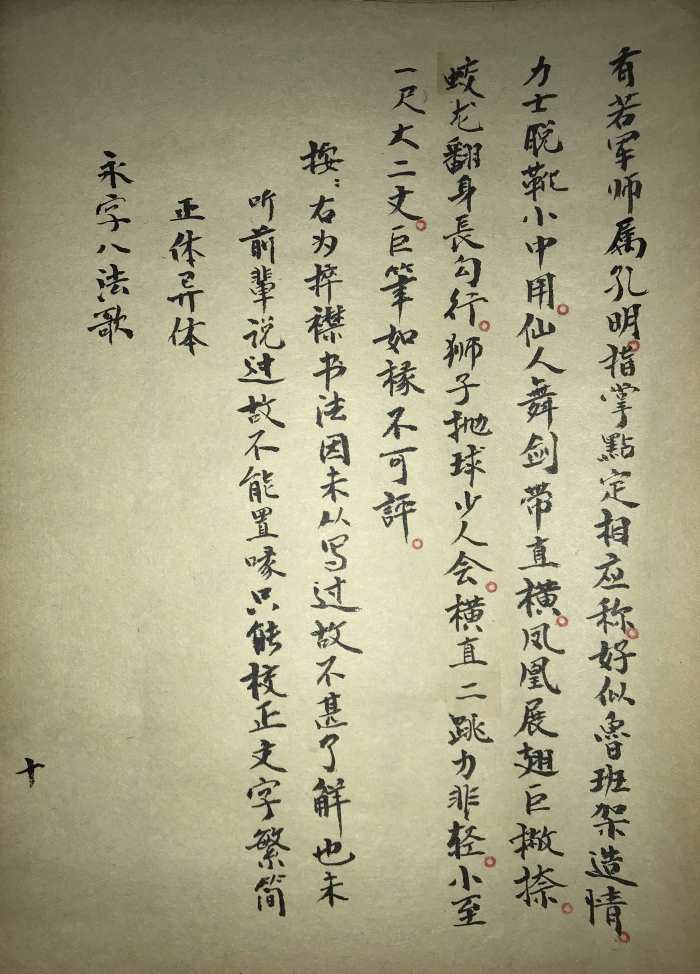 有若军师属孔明。指掌點定相应称。好似魯班架造情。
力士脱靴小中用。仙人舞剑带直横。凤凰展翅巨撇捺。
蛟龙翻身長勾行。狮子抛球少人会。横直二跳力非轻。小至
一尺大二丈。巨筆如椽不可評。
按：右为捽襟书法因未从写过故不甚了解也未
听前輩说过故不能置喙只能校正文字繁简
正体异体
永字八法歌
十